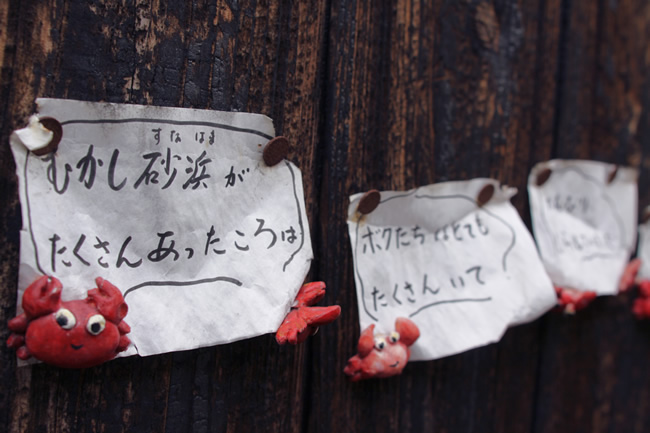 すなはま
むかし砂浜が
たくさんあったころは
ボクたちはとても
たくさんいて